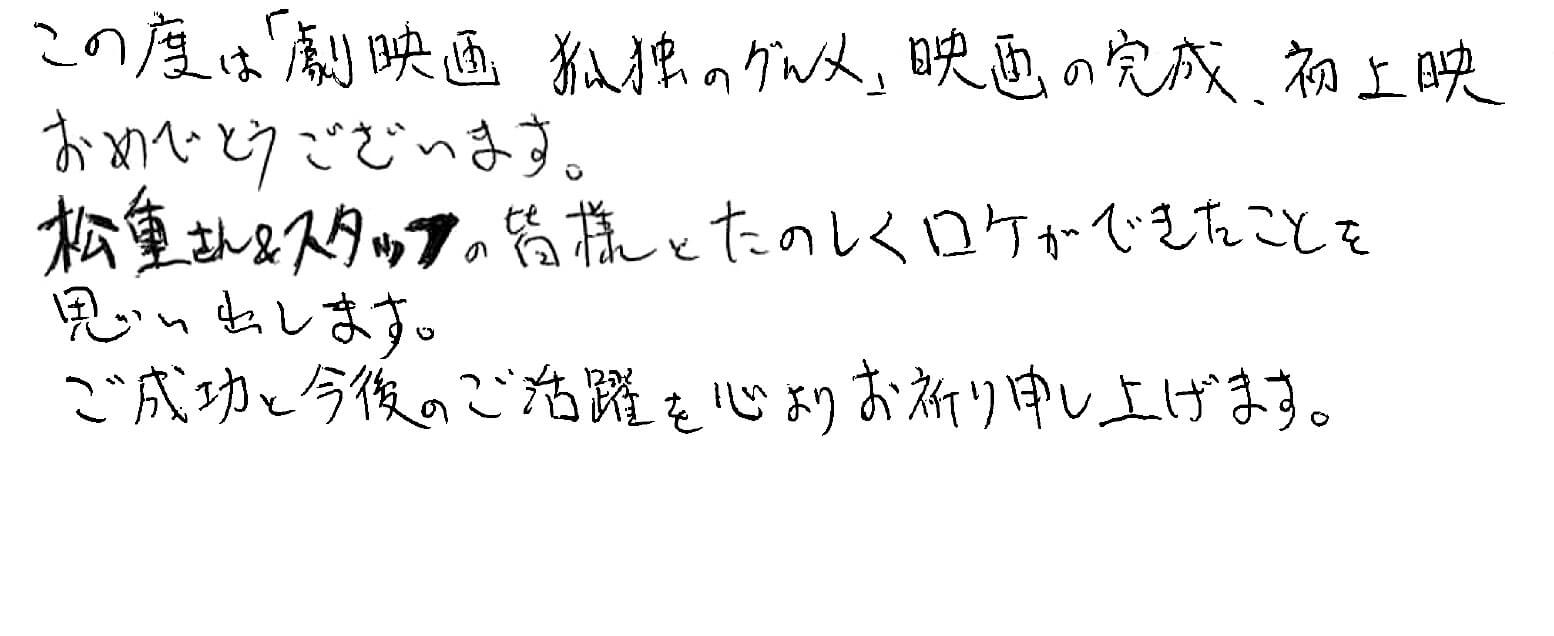 この度は「劇映画 孤独のグルメ」映画の完成、初上映
おめでとうございます。
松重さん&スタッフの皆様とたのしくロケができたことを
思い出します。
ご成功と今後のご活躍を心よりお祈り申し上げます。